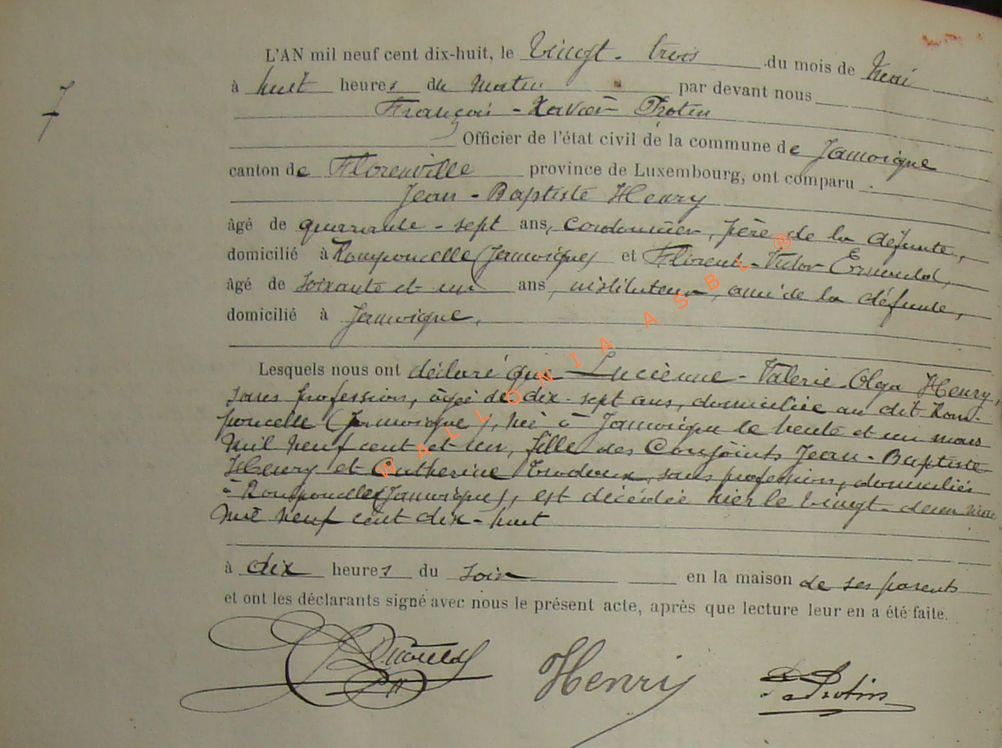 L'AN mil neuf cent dix-huit, le Vingt-trois du mois de Mai
à huit heures du matin par devant nous
7
François-Xavier Protin
Officier de l'état civil de la commune de Jamoigne
canton de Florenville province de Luxembourg, ont comparu
Jean-Baptiste Henry
âgé de quarante-sept ans, cordonnier, père de la défunte,
domicilié à Romponcelle (Jamoigne) et Florent-Victor Ermould,
âgé de soixante et un ans, instituteur, ami de la défunte,
domicilié à Jamoigne.
WALLONIA ASBL ©
Lesquels nous ont déclaré que Lucienne-Valerie Olga Henry,
sans profession, âgée de dix-sept ans, domiciliée au dit Rom-
poncelle (Jamoigne), née à Jamoigne le trente et un mars
mil neuf cent et un, fille des Conjoints Jean-Baptiste
Henry et Catherine sans profession, domiciliés
à Romponcelle (Jamoigne), est décédée hier le vingt-deux mai
mil neuf cent dix-huit
à dix heures du soir en la maison de ses parents
et ont les déclarants signé avec nous le présent acte, après que lecture leur en a été faite.
Ermould Henry Protin